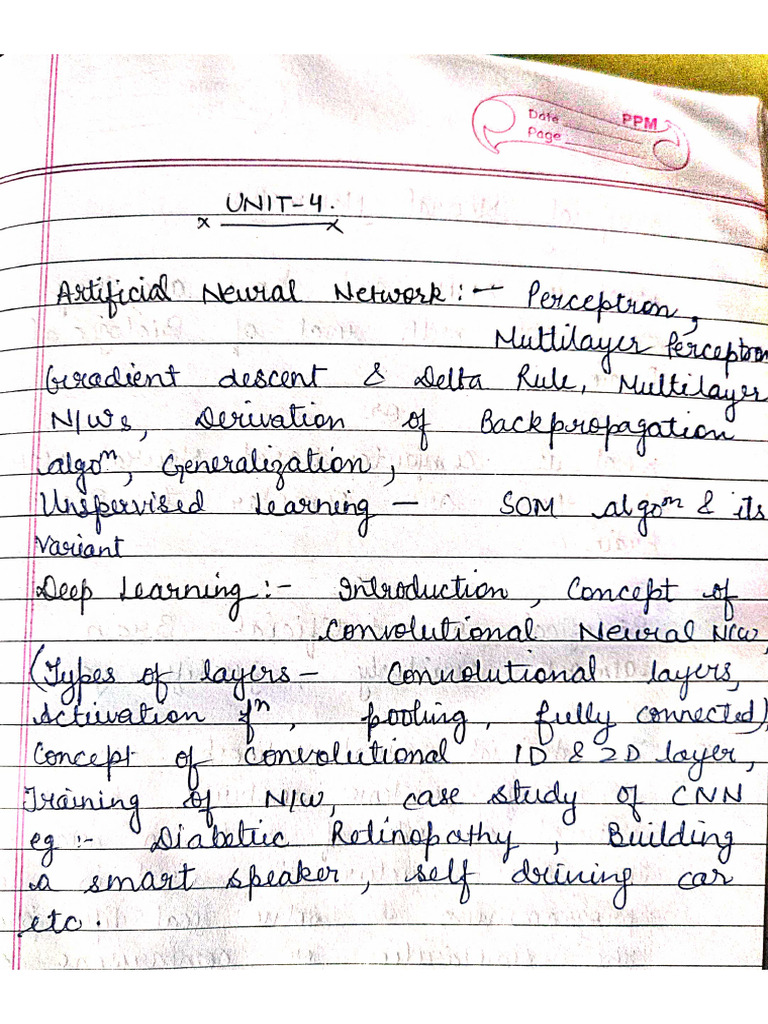 Date
PPM
Page
UNIT-4.
Artificial Neural Network :- Perceptron,
Multilayer Perceptron
Gradient descent & Delta Rule, Multilayer
N/Ws, Derivation of Backpropagation
algoᵐ, Generalization,
Unspervised Learning - SOM algoᵐ & its
Variant
Deep Learning :- Introduction, Concept of
Convolutional Neural N/W,
(Types of layers - Convolutional layers,
Activation fⁿ, pooling, fully connected),
Concept of Convolutional 1D & 2D layer,
Training of N/W, case study of CNN
eg :- Diabetic Retinopathy, Building
a smart speaker, self driving car
etc.